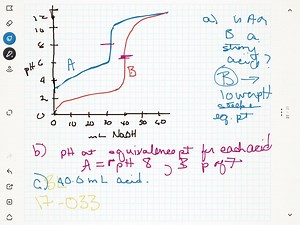 12
10
8
6
4
2
0
pH
A
B
0 10 20 30 40 50 60
mL NaOH
a) is A or
B a
strong
acid?
B →
lower pH
eq. pt
b) pH at equivalence pt for each acid
A = pH 8, B pH 7
c) 40.0 mL acid.
17-033